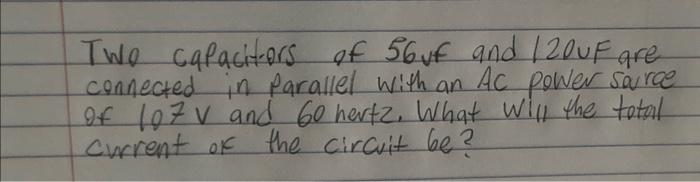 Two capacitors of 56uf and 120uF are
connected in parallel with an AC power source
of 107 V and 60 hertz. What will the total
current of the circuit be?